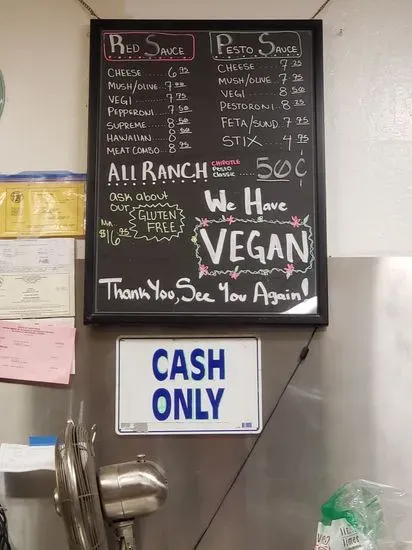 RED SAUCE
CHEESE ..... 6 75
MUSH/OLIVE .. 7
VEGI ....... 7 75
PEPPERONI .. 7 50
SUPREME ... 8 50
HAWAIIAN ... 8
MEAT COMBO .. 8 95
PESTO SAUCE
CHEESE ..... 7 25
MUSH/OLIVE . 7 75
VEGI ....... 8 50
PESTORONI . 8 25
FETA/SUND. 7 75
STIX ...... 4 75
ALL RANCH CHIPOTLE PESTO CLASSIC .... 50¢
ask about
our GLUTEN
FREE
$16 95
We Have
VEGAN
Thank You, See You Again!
CASH
ONLY